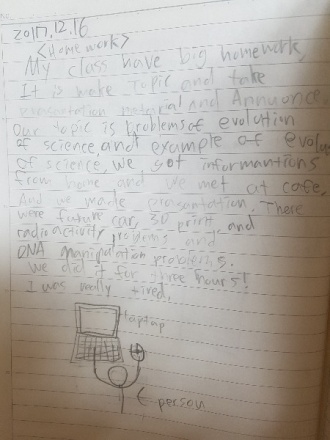 2017.12.16
<Homework>
My class have big homework.
It is make topic and take
presentation material and Announce.
Our topic is problems of evolution
of science, and example of evolu
of science, we got informantions
from home and we met at cafe.
And we made presantation. There
were future car, 3D print, and
radioactivity, and
DNA manipulation problems.
We did it for three hours!
I was really tired.
laptap
person